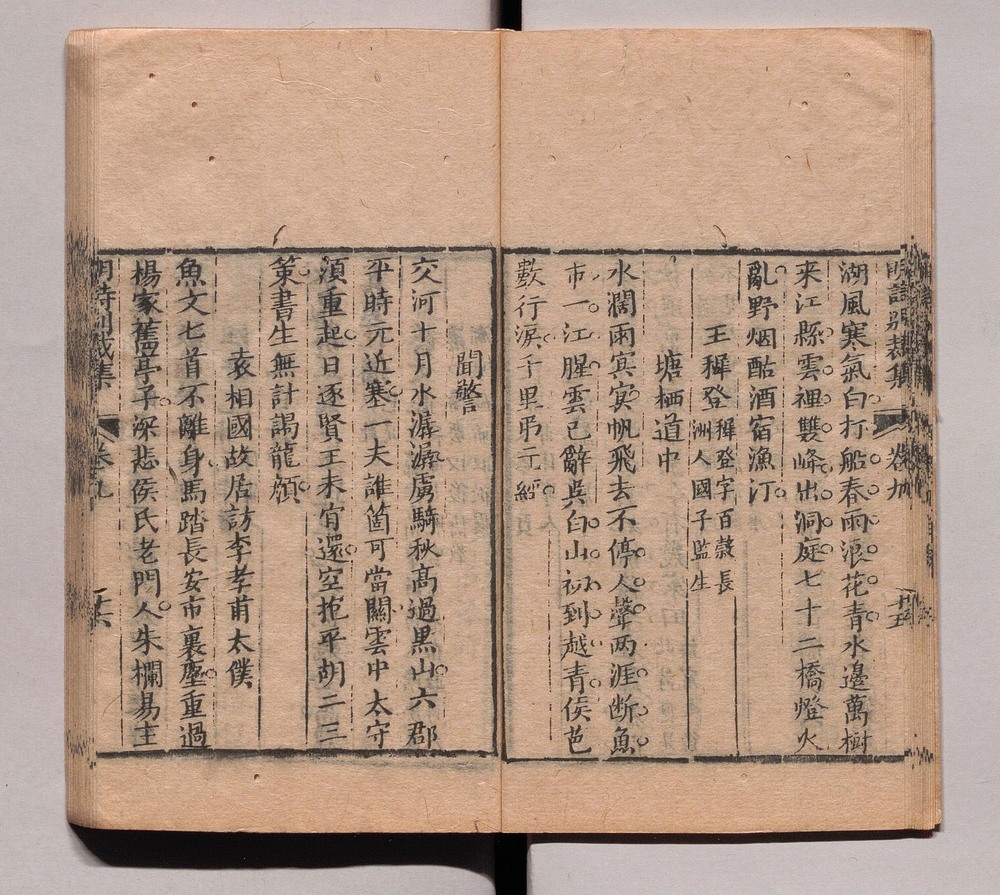 明詩別裁集 卷九
湖風寒氣白打船春雨浪花青水邊萬樹
来江縣雲裡雙峰出洞庭七十二橋燈火
亂野烟酤酒宿漁汀
王穉登 穉登字百穀長
洲人國子監生
塘栖道中
水濶雨㝠㝠帆飛去不停人聲两涯断魚
市一江腥雲已辭吳白山初到越青侯芭
數行淚千里弔元經
聞警
交河十月水潺潺虜騎秋高過黑山六郡
平時元近塞一夫誰箇可當關雲中太守
須重起日逐賢王未肯還空抱平胡二三
策書生無計謁龍顔
袁相國故居訪李孝甫太僕
魚文七首不離身馬踏長安市裏塵重過
楊家舊亭子深悲侯氏老門人朱欄易主
明詩別裁集 卷九